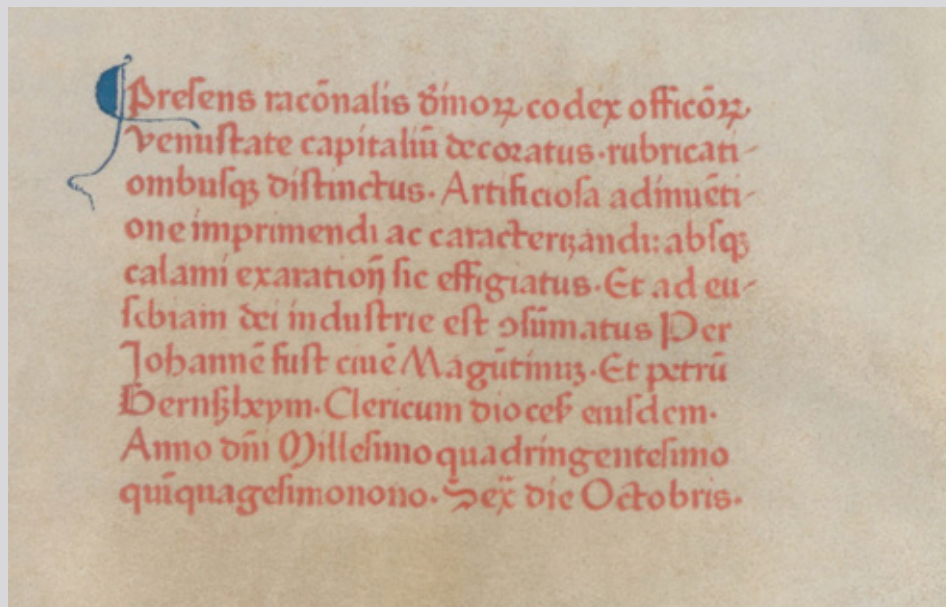 Presens racōnalis diīnoꝝ codex officōꝝ
venustate capitaliū decoratus·rubricati-
onibusqꝫ distinctus·Artificiosa adinuēti-
one imprimendi ac caracterizandi: absqꝫ
calami exarationꝫ sic effigiatus·Et ad eu-
sebiam dei industrie est ꝯsūmatus Per
Johannē fust ciuē Magūtinuꝫ·Et petrū
Gernsꝫheym·Clericum dioceẜ eiusdem·
Anno dn̄i Millesimo quadringentesimo
quīquagesimonono·Sex̄ die Octobris·